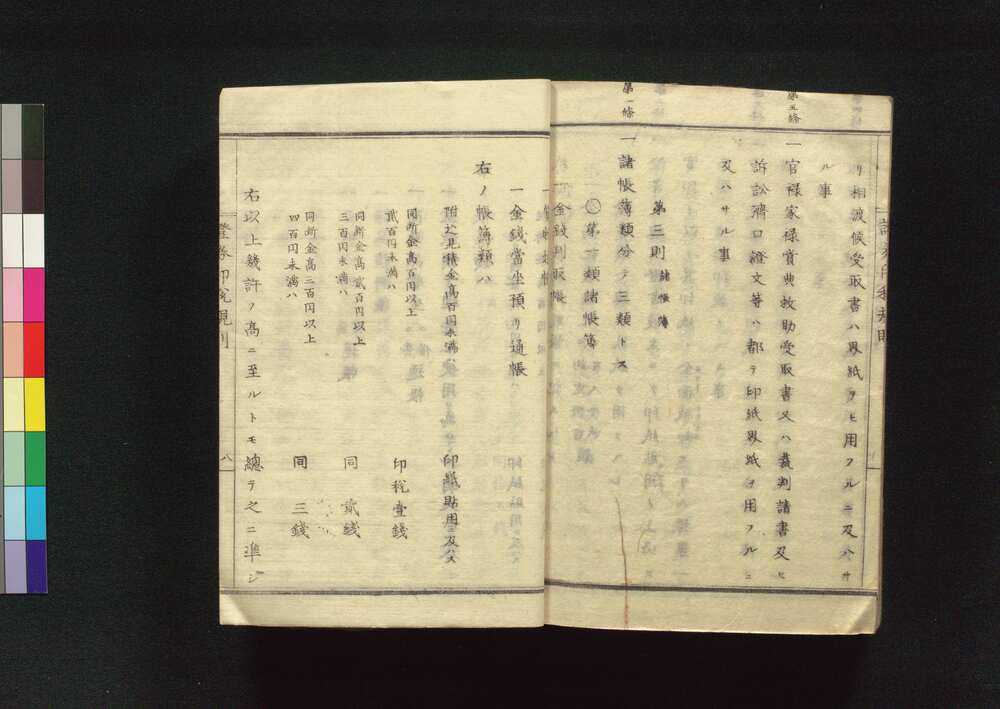 リ相渡候受取書ハ界紙ヲモ用フルニ及ハサ
ル事
第五條
一官禄家禄賞典救助受取書又ハ裁判請書及ヒ
訴訟濟口證文等ハ都テ印紙界紙ヲ用フルニ
及ハサル事
第三則 諸帳簿
第一條
一諸帳簿類分テ三類トス
第一類諸帳簿
一金錢判取帳
一金錢當坐預リ通帳
右ノ帳簿類ハ
附込見積金高百円未満ハ 印紙貼用ニ及ハス
同断金高百円以上
貳百円未満ハ 印税壹錢
同断金高貳百円以上
三百円未満ハ 同 貳錢
同断金高三百円以上
四百円未満ハ 同 三錢
右以上幾許ノ高ニ至ルトモ總テ之ニ準シ
證券印税規則
八